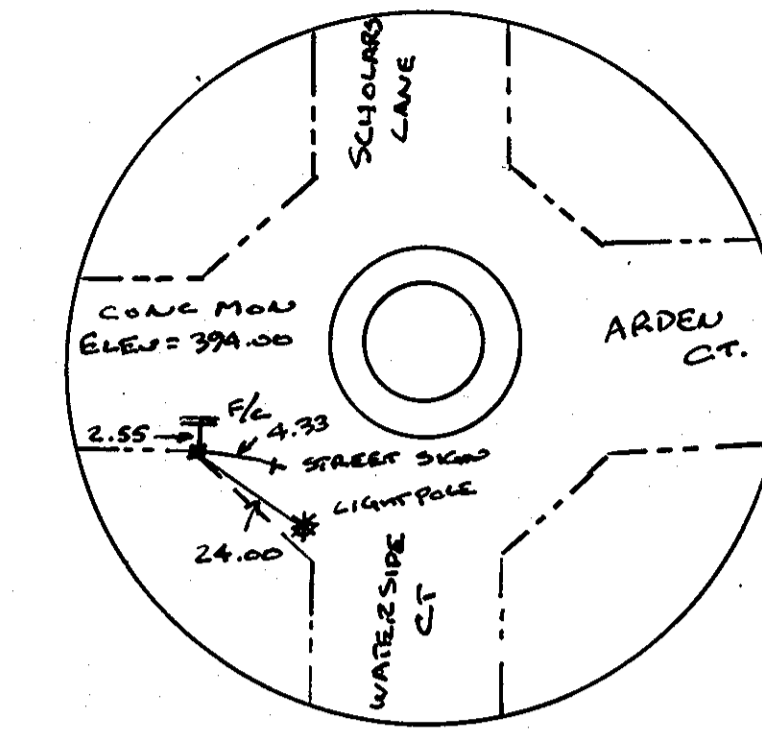 SCHOLARS
LANE
CONC MON
ELEV = 394.00
ARDEN
CT.
F/C
2.55
4.33
STREET SIGN
LIGHTPOLE
24.00
WATERSIDE
CT